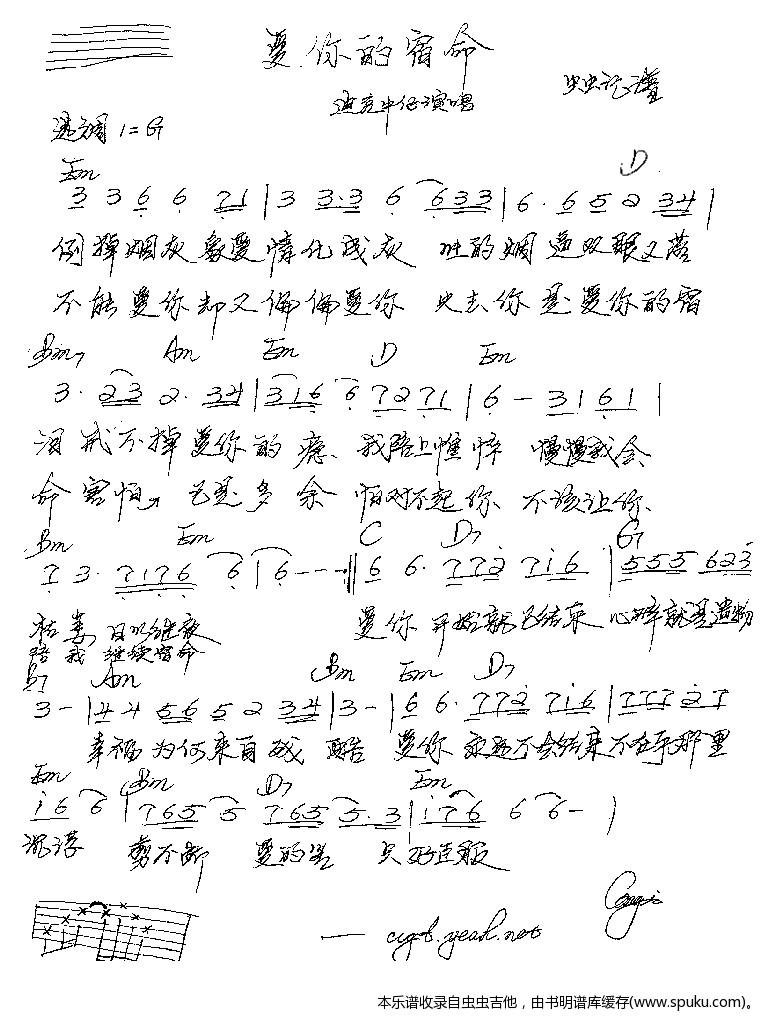 爱你的宿命
迪克牛仔演唱
虫虫记谱
选调 1=G
Em D
3 3 6 6 71 | 3 3·3 6 633 | 6· 6 5 2 34 |
倒掉烟灰 象爱情化成灰 吐的烟 逼双眼又落
不能爱你却又偏偏爱你 失去你是爱你的宿
Bm7 Am Em D Em
3· 23 2· 34 | 316 6 7271 | 6 - 31 61 |
泪 戒不掉爱你的瘾 我陪上憔悴 慢慢我会
命 害怕 已是多余 怕对不起你 不该让你
Bm Em C D7 G7
7 3· 7176 6 | 6 - - - :|| 6 6· 772 716 | 555 623
枯萎 日以继夜 爱你 开始就已结束 心碎就是遗物
陪我 继续宿命
B7 Am Bm Em D7
3 - | 44 56 5 2 34 | 3 - | 6 6· 772 716 | 777 27
幸福为何来自残酷 爱你 永远不会结束 不在乎那里
Em Bm D7 Em
i 6 6 | 765 5 765 5·3 | 176 6 6 - |
沉浮 剪不断 爱的苦 只好臣服
— cycl.yeah.net
本乐谱收录自虫虫吉他，由书明谱库缓存(www.spuku.com)。